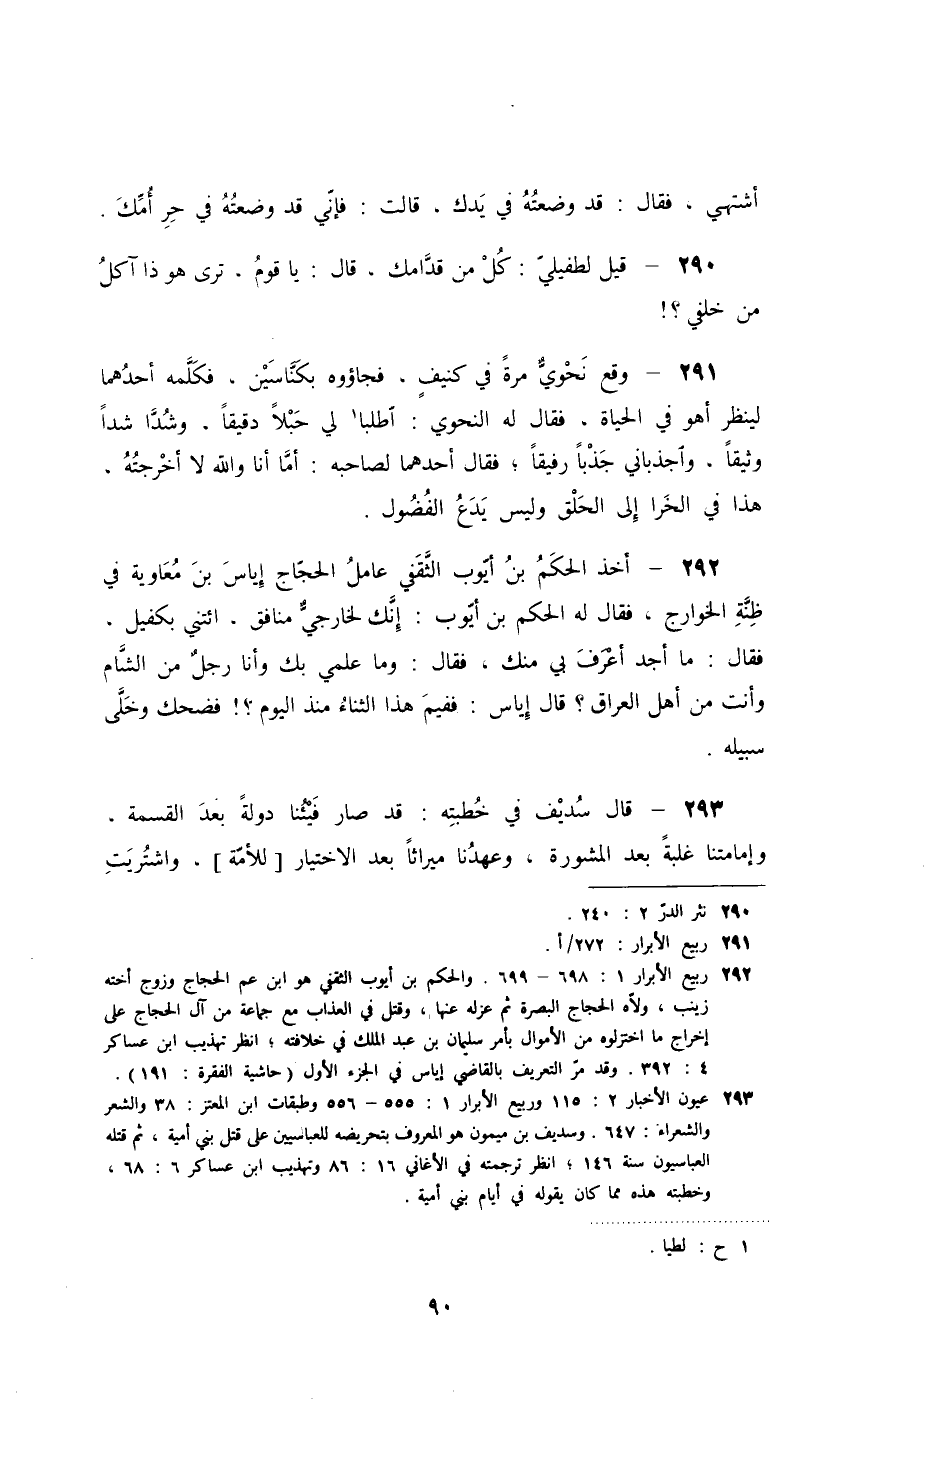 أشتهي ، فقال : قد وضعتُهُ في يَدك . قالت : فإنّي قد وضعتُهُ في حِرِ أُمِّكَ .
٢٩٠ – قيل لطفيليّ : كُلْ من قدَّامك . قال : يا قومُ ، ترى هو ذا آكلُ
من خلفي ؟!
٢٩١ – وقع نَحْويٌّ مرةً في كنيفٍ . فجاؤوه بكَنَّاسَيْن . فكَلَّمه أحدُهما
لينظر أهو في الحياة . فقال له النحوي : ٱطلبا١ لي حَبْلاً دقيقاً . وشُدَّا شداً
وثيقاً . وٱجذباني جَذْباً رفيقاً ؛ فقال أحدهما لصاحبه : أمَّا أنا والله لا أخْرجتُهُ .
هذا في الخَرا إلى الحَلْق وليس يَدَعُ الفُضُول .
٢٩٢ – أخذ الحكَمُ بنُ أيّوب الثَّقَفي عاملُ الحجّاج إياسَ بنَ مُعَاوية في
ظِنَّةِ الخوارج ، فقال له الحكم بن أيّوب : إنَّك لخارجيٌّ منافق . ائتني بكفيل .
فقال : ما أجد أعْرَفَ بي منك ، فقال : وما علمي بك وأنا رجلٌ من الشَّام
وأنت من أهل العراق ؟ قال إياس : ففيمَ هذا الثناءُ منذ اليوم ؟! فضحك وخَلَّى
سبيله .
٢٩٣ – قال سُديْف في خُطبتِه : قد صار فَيْئُنا دولةً بعدَ القسمة .
وإمامتنا غلبةً بعد المشورة ، وعهدُنا ميراثاً بعد الاختيار [ للأمّة ] . واشتُريَتِ
٢٩٠ نثر الدرّ ٢ : ٢٤٠ .
٢٩١ ربيع الأبرار : ٢٧٢/أ .
٢٩٢ ربيع الأبرار ١ : ٦٩٨ – ٦٩٩ . والحكم بن أيوب الثقفي هو ابن عم الحجاج وزوج أخته
زينب ، ولاّه الحجاج البصرة ثم عزله عنها ، وقتل في العذاب مع جماعة من آل الحجاج على
إخراج ما اختزلوه من الأموال بأمر سليمان بن عبد الملك في خلافته ؛ انظر تهذيب ابن عساكر
٤ : ٣٩٢ . وقد مرّ التعريف بالقاضي إياس في الجزء الأول (حاشية الفقرة : ١٩١) .
٢٩٣ عيون الأخبار ٢ : ١١٥ وربيع الأبرار ١ : ٥٥٥ – ٥٥٦ وطبقات ابن المعتز : ٣٨ والشعر
والشعراء : ٦٤٧ . وسديف بن ميمون هو المعروف بتحريضه للعباسيين على قتل بني أمية ، ثم قتله
العباسيون سنة ١٤٦ ؛ انظر ترجمته في الأغاني ١٦ : ٨٦ وتهذيب ابن عساكر ٦ : ٦٨ ،
وخطبته هذه مما كان يقوله في أيام بني أمية .
١ ح : لطيا .
٩٠